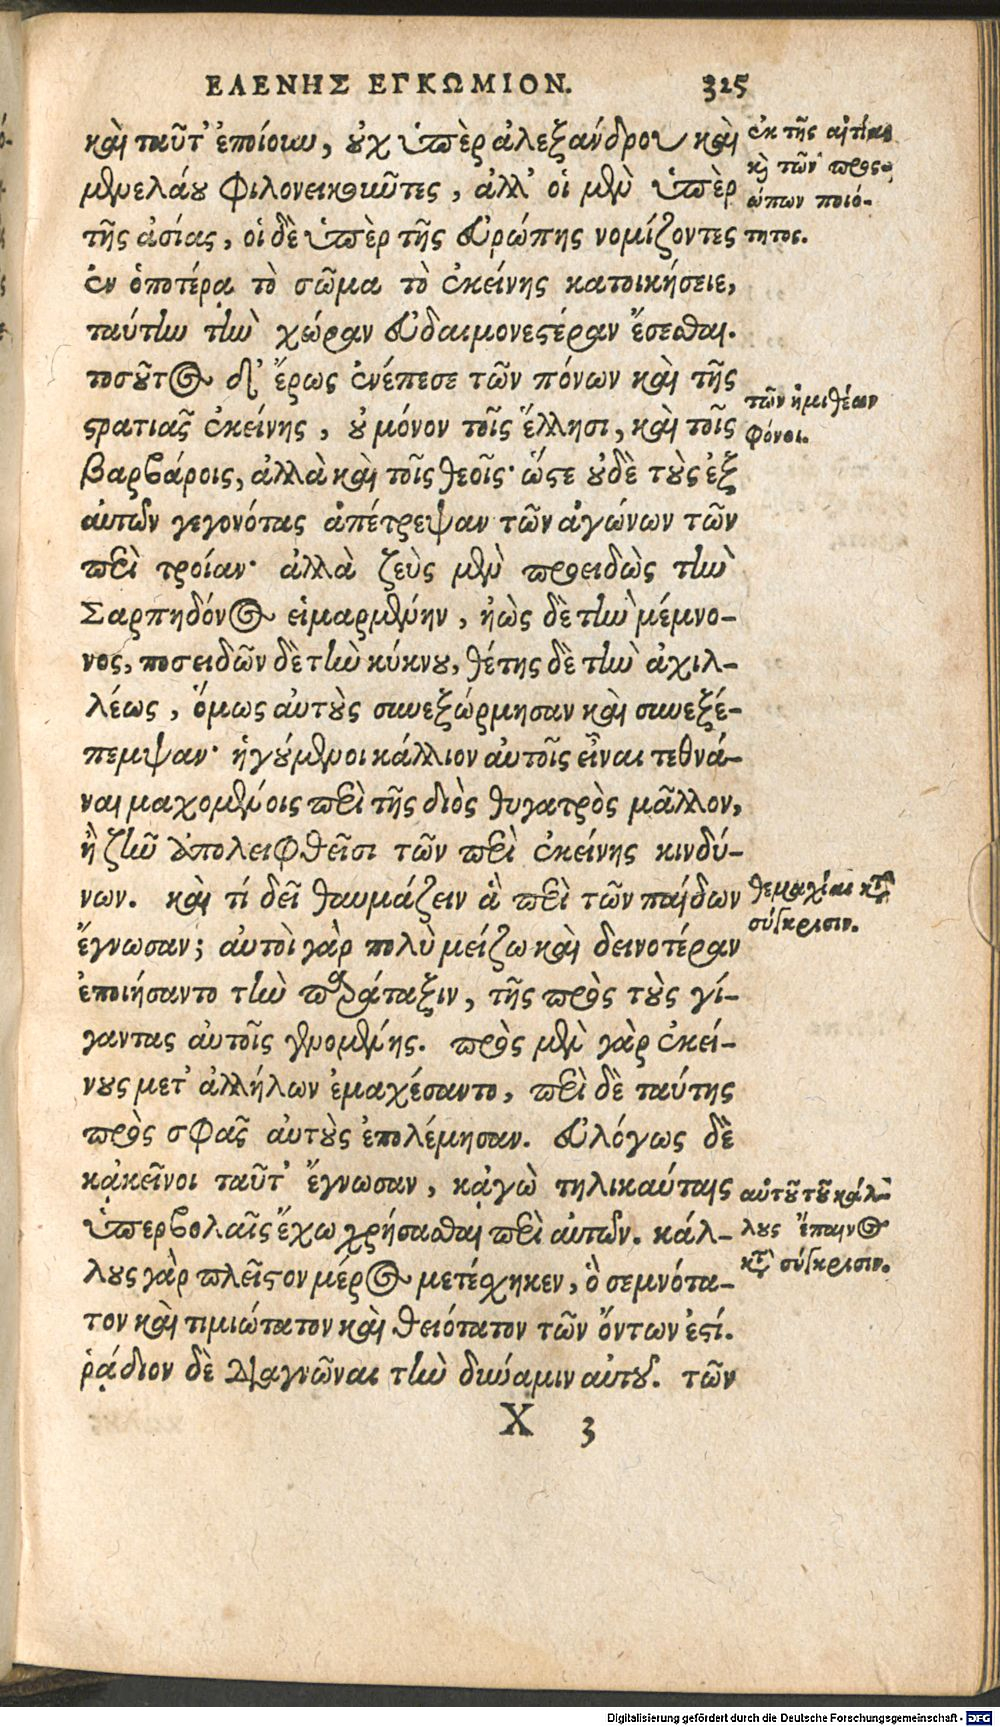 ΕΛΕΝΗΣ ΕΓΚΩΜΙΟΝ. 325
καὶ ταῦτ᾽ ἐποίουν, οὐχ ὑπὲρ ἀλεξάνδρου καὶ
μενελάου φιλονεικοῦντες, ἀλλ᾽ οἱ μὲν ὑπὲρ
τῆς ἀσίας, οἱ δὲ ὑπὲρ τῆς εὐρώπης νομίζοντες
ἐν ὁποτέρᾳ τὸ σῶμα τὸ ἐκείνης κατοικήσειε,
ταύτην τὴν χώραν εὐδαιμονεστέραν ἔσεσθαι.
τοσοῦτος δ᾽ ἔρως ἐνέπεσε τῶν πόνων καὶ τῆς
στρατιᾶς ἐκείνης, οὐ μόνον τοῖς ἕλλησι, καὶ τοῖς
βαρβάροις, ἀλλὰ καὶ τοῖς θεοῖς· ὥστε οὐδὲ τοὺς ἐξ
αὐτῶν γεγονότας ἀπέτρεψαν τῶν ἀγώνων τῶν
περὶ τροίαν· ἀλλὰ ζεὺς μὲν προειδὼς τὴν
Σαρπηδόνος εἱμαρμένην, ἠὼς δὲ τὴν μέμνο-
νος, ποσειδῶν δὲ τὴν κύκνου, θέτης δὲ τὴν ἀχιλ-
λέως, ὅμως αὐτοὺς συνεξώρμησαν καὶ συνεξέ-
πεμψαν· ἡγούμενοι κάλλιον αὐτοῖς εἶναι τεθνά-
ναι μαχομένοις περὶ τῆς διὸς θυγατρὸς μᾶλλον,
ἢ ζῆν ἀπολειφθεῖσι τῶν περὶ ἐκείνης κινδύ-
νων. καὶ τί δεῖ θαυμάζειν ἃ περὶ τῶν παίδων
ἔγνωσαν; αὐτοὶ γὰρ πολὺ μείζω καὶ δεινοτέραν
ἐποιήσαντο τὴν παράταξιν, τῆς πρὸς τοὺς γί-
γαντας αὐτοῖς γενομένης. πρὸς μὲν γὰρ ἐκεί-
νους μετ᾽ ἀλλήλων ἐμαχέσαντο, περὶ δὲ ταύτης
πρὸς σφᾶς αὐτοὺς ἐπολέμησαν. εὐλόγως δὲ
κᾀκεῖνοι ταῦτ᾽ ἔγνωσαν, κᾀγὼ τηλικαύταις
ὑπερβολαῖς ἔχω χρήσασθαι περὶ αὐτῶν. κάλ-
λους γὰρ πλεῖστον μέρος μετέσχηκεν, ὃ σεμνότα-
τον καὶ τιμιώτατον καὶ θειότατον τῶν ὄντων ἐστί.
ῥᾴδιον δὲ διαγνῶναι τὴν δύναμιν αὐτοῦ. τῶν
X 3
ἐκ τῆς αἰτίας
καὶ τῶν προσ-
ώπων ποιό-
τητος.
τῶν ἡμιθέων
φόνοι.
θεμαχίαι κτ
σύγκρισιν.
αὐτοῦ τοῦ κάλ-
λους ἔπαινος
κτ σύγκρισιν.
Digitalisierung gefördert durch die Deutsche Forschungsgemeinschaft - DFG